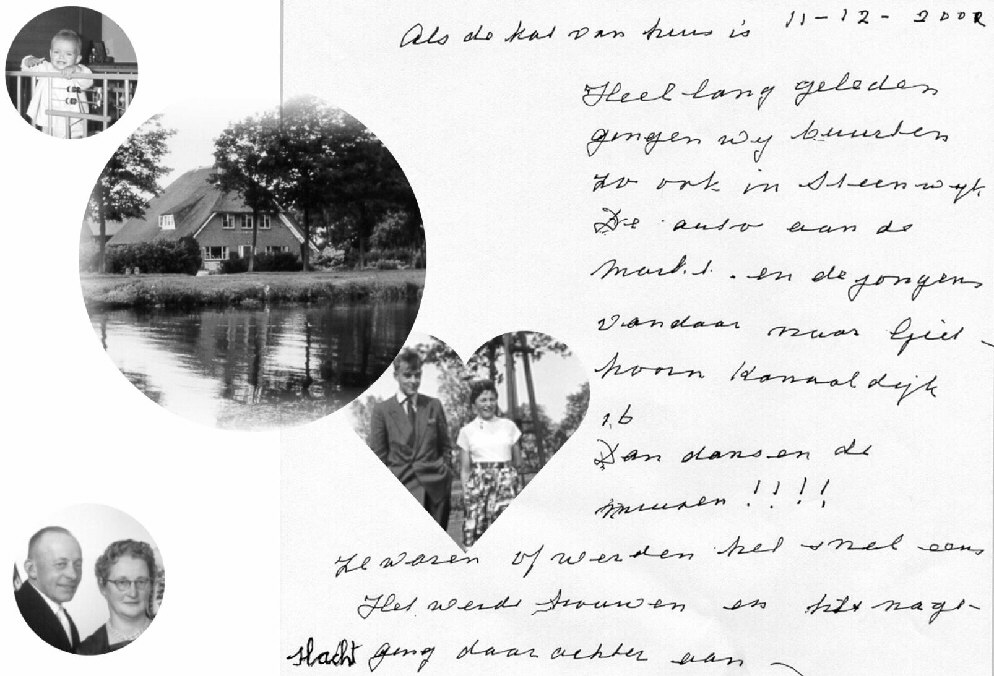 Als de kat van huis is 11-12-2002
Heel lang geleden
gingen wy buurten
zo ook in Steenwyk
De auto aan de
markt. en de jongens
vandaar naar Giet-
hoorn Kanaaldijk
Dan dansen de
muizen !!!!
Ze waren of werden het snel eens
Het werd trouwen en het nage-
slacht ging daar achter aan